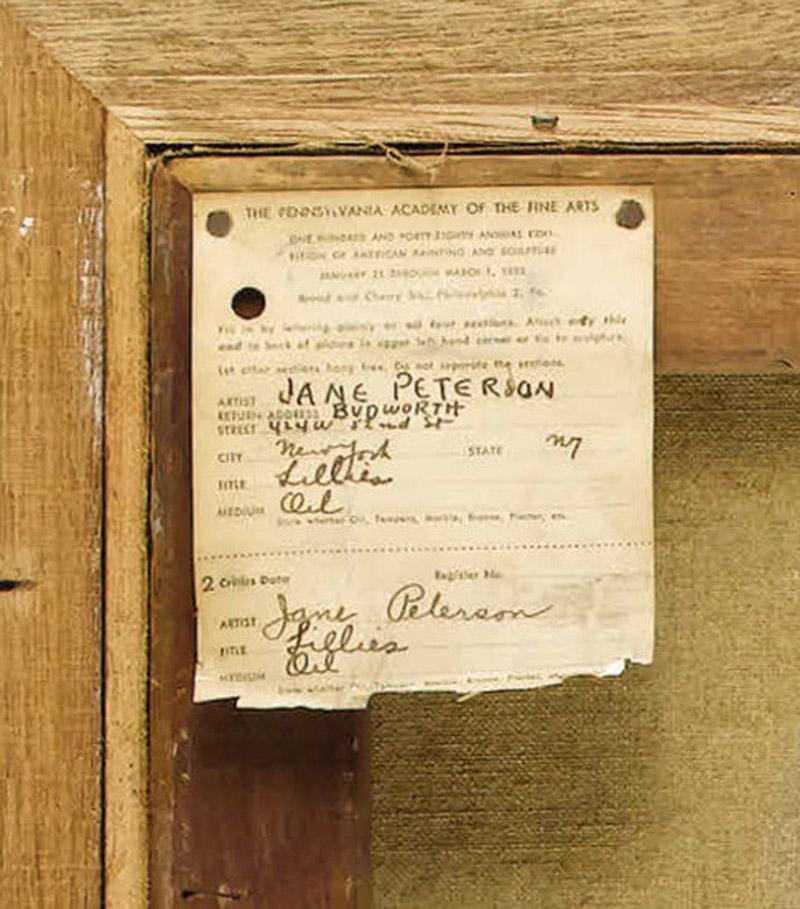 THE PENNSYLVANIA ACADEMY OF THE FINE ARTS
ONE HUNDRED AND FORTY-EIGHTH ANNUAL EXHI-
BITION OF AMERICAN PAINTING AND SCULPTURE
JANUARY 25 THROUGH MARCH 1, 1953
Broad and Cherry Sts., Philadelphia 2, Pa.
Fill in by lettering plainly on all four sections. Attach only this
end to back of picture in upper left hand corner or tie to sculpture.
Let other sections hang free. Do not separate the sections.
ARTIST JANE PETERSON
RETURN ADDRESS BUDWORTH
STREET 424 W 52nd St
CITY New York STATE NY
TITLE Lillies
MEDIUM Oil
State whether Oil, Tempera, Marble, Bronze, Plaster, etc.
2 Critics Data Register No.
ARTIST Jane Peterson
TITLE Lillies
MEDIUM Oil
State whether Oil, Tempera, Marble, Bronze, Plaster,